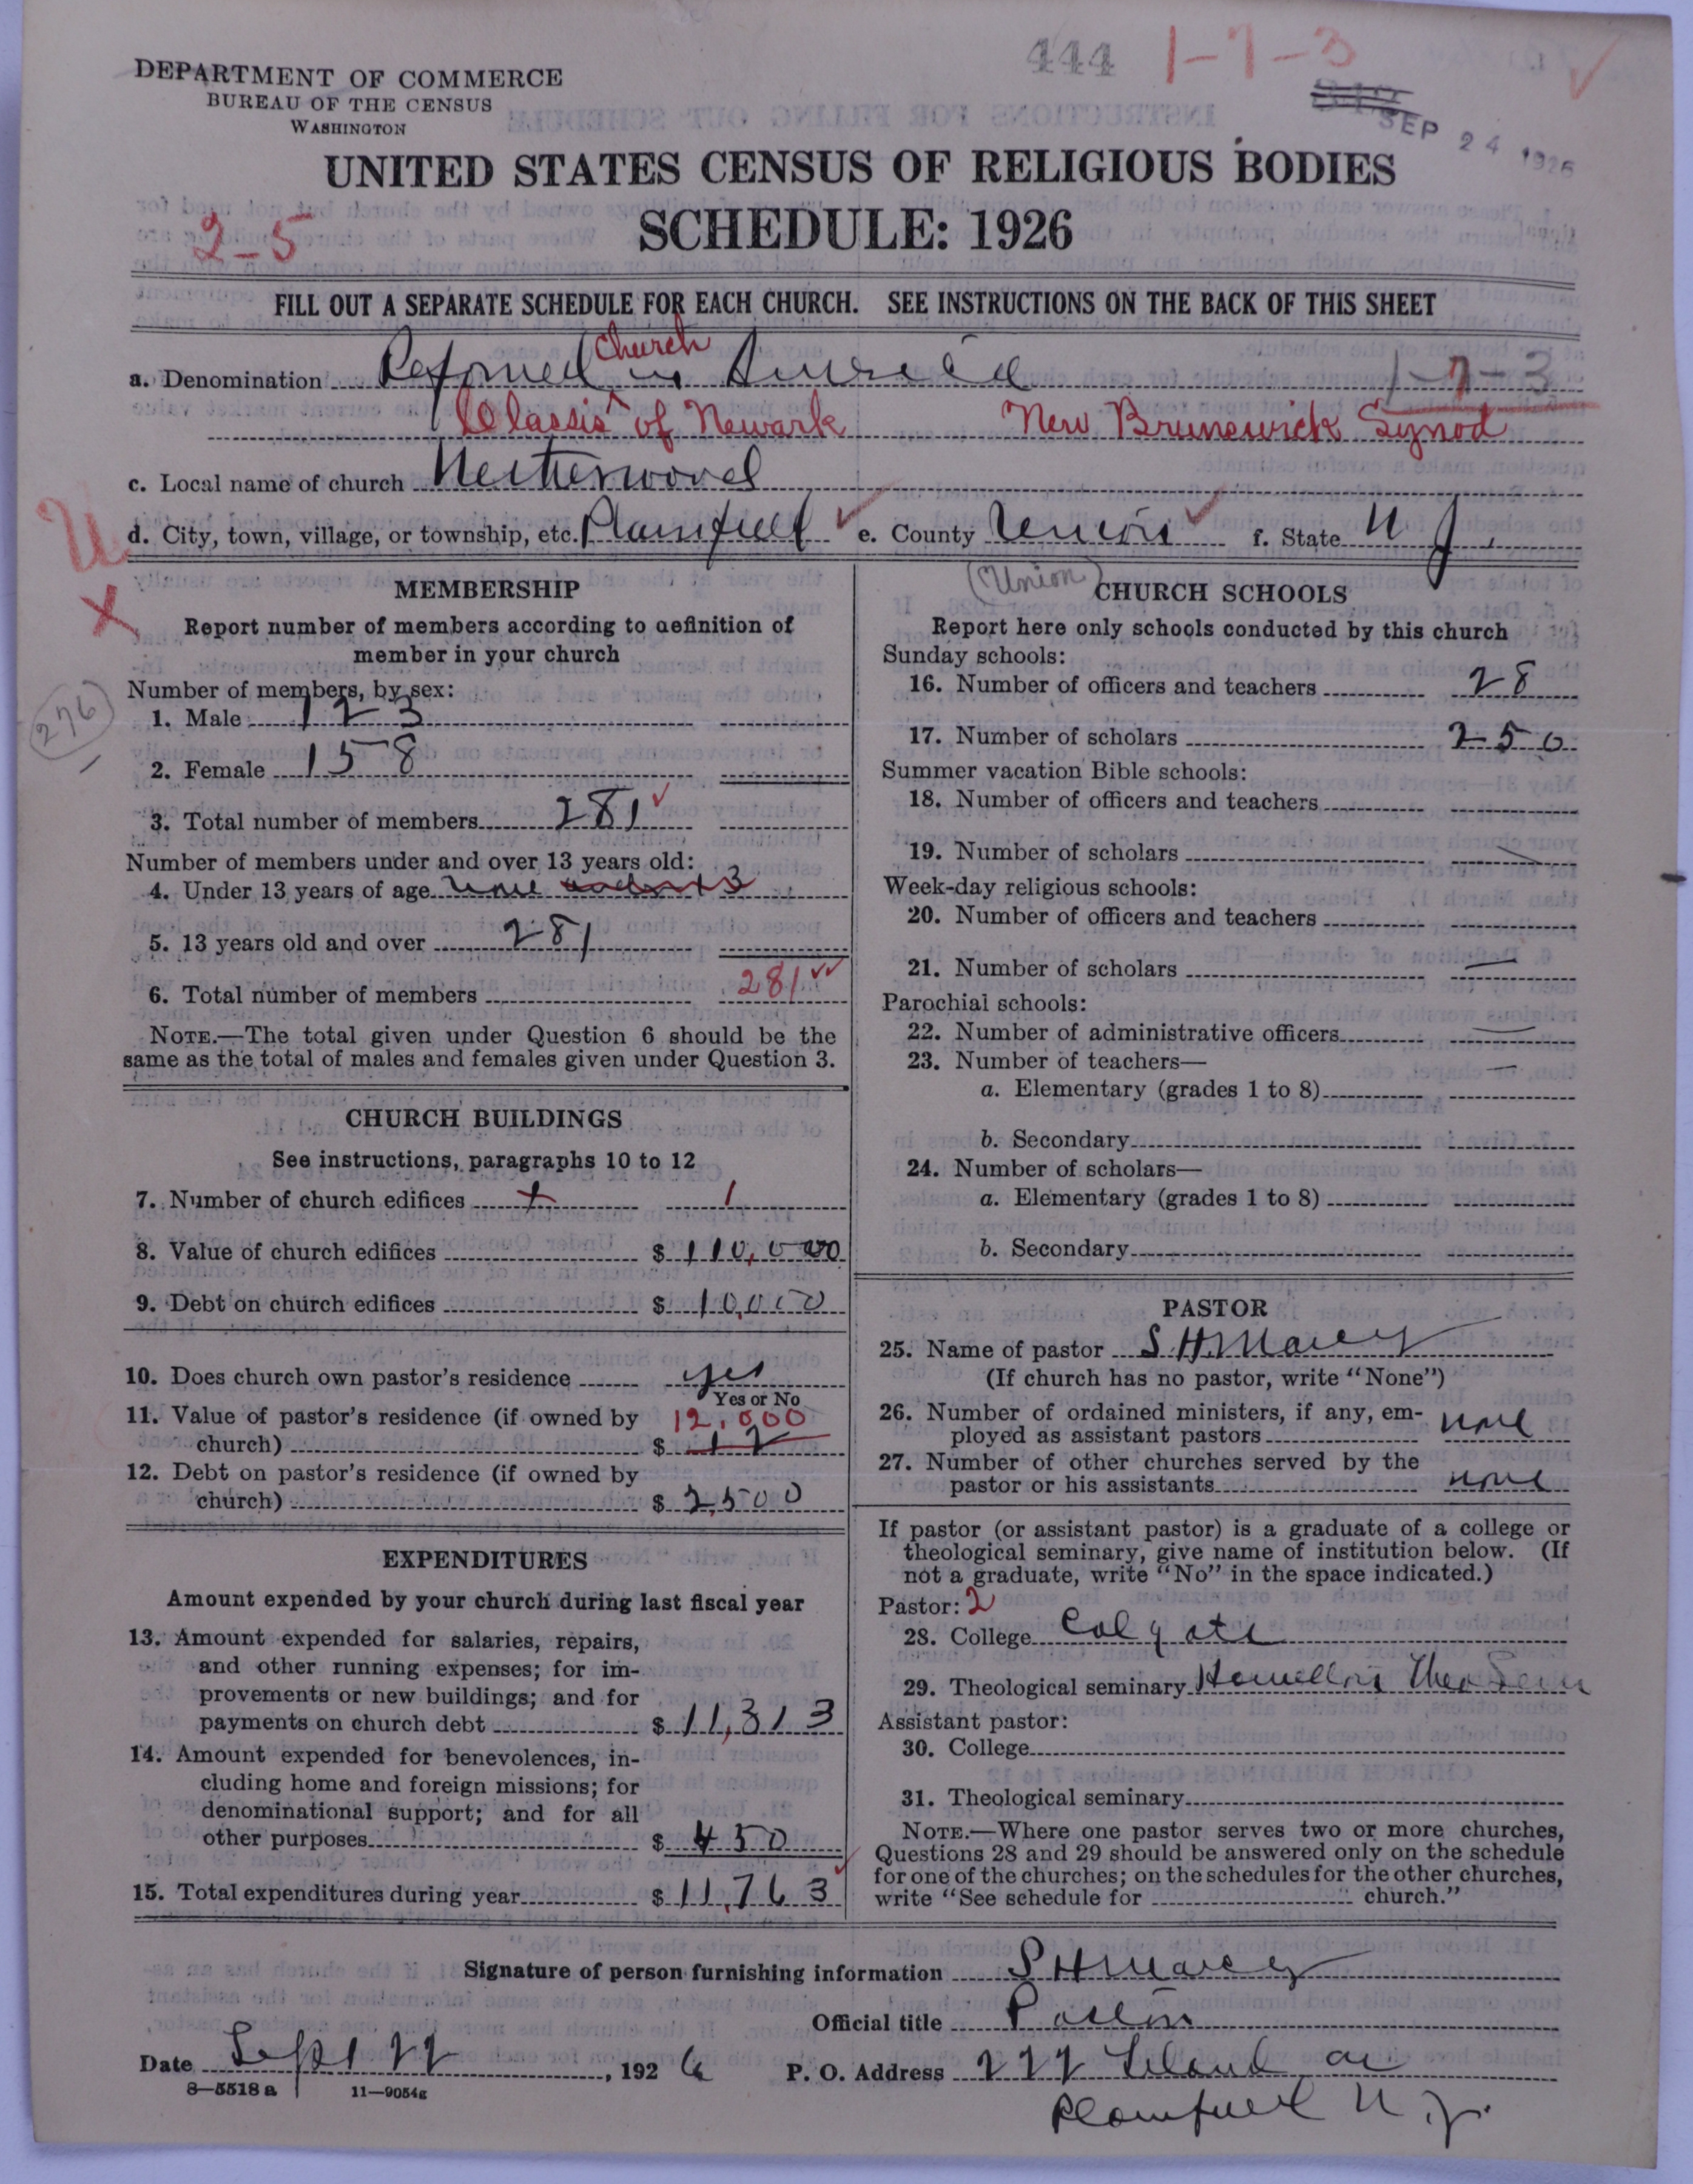 444 1-7-3
DEPARTMENT OF COMMERCE
BUREAU OF THE CENSUS
WASHINGTON
SEP 24 1926
UNITED STATES CENSUS OF RELIGIOUS BODIES
SCHEDULE: 1926
2-5
FILL OUT A SEPARATE SCHEDULE FOR EACH CHURCH. SEE INSTRUCTIONS ON THE BACK OF THIS SHEET
a. Denomination Reformed Church in America 1-7-3
Classis of Newark New Brunswick Synod
c. Local name of church Netherwood
d. City, town, village, or township, etc. Plainfield e. County Union f. State N J.
(Union)
MEMBERSHIP
Report number of members according to definition of
member in your church
Number of members, by sex:
276
1. Male 123
2. Female 158
3. Total number of members 281
Number of members under and over 13 years old:
4. Under 13 years of age none under 13
5. 13 years old and over 281
6. Total number of members 281
NOTE.—The total given under Question 6 should be the
same as the total of males and females given under Question 3.
CHURCH BUILDINGS
See instructions, paragraphs 10 to 12
7. Number of church edifices 1
8. Value of church edifices $ 110,000
9. Debt on church edifices $ 10,000
10. Does church own pastor's residence yes
Yes or No
11. Value of pastor's residence (if owned by 12,000
church) $ 12
12. Debt on pastor's residence (if owned by
church) $ 2,500
EXPENDITURES
Amount expended by your church during last fiscal year
13. Amount expended for salaries, repairs,
and other running expenses; for im-
provements or new buildings; and for
payments on church debt $ 11,313
14. Amount expended for benevolences, in-
cluding home and foreign missions; for
denominational support; and for all
other purposes $ 450
15. Total expenditures during year $ 11,763
CHURCH SCHOOLS
Report here only schools conducted by this church
Sunday schools:
16. Number of officers and teachers 28
17. Number of scholars 250
Summer vacation Bible schools:
18. Number of officers and teachers
19. Number of scholars
Week-day religious schools:
20. Number of officers and teachers
21. Number of scholars —
Parochial schools:
22. Number of administrative officers —
23. Number of teachers— —
a. Elementary (grades 1 to 8)
b. Secondary
24. Number of scholars—
a. Elementary (grades 1 to 8)
b. Secondary
PASTOR
25. Name of pastor S. H. Marcy
(If church has no pastor, write "None")
26. Number of ordained ministers, if any, em-
ployed as assistant pastors none
27. Number of other churches served by the
pastor or his assistants none
If pastor (or assistant pastor) is a graduate of a college or
theological seminary, give name of institution below. (If
not a graduate, write "No" in the space indicated.)
Pastor: 2
28. College Colgate
29. Theological seminary Hamilton Theo Sem
Assistant pastor:
30. College
31. Theological seminary
NOTE.—Where one pastor serves two or more churches,
Questions 28 and 29 should be answered only on the schedule
for one of the churches; on the schedules for the other churches,
write "See schedule for church."
Signature of person furnishing information S H Marcy
Official title Pastor
Date Sept 22, 1926 P. O. Address 222 Leland av
8—5518 a 11—9054g
Plainfield N. J.